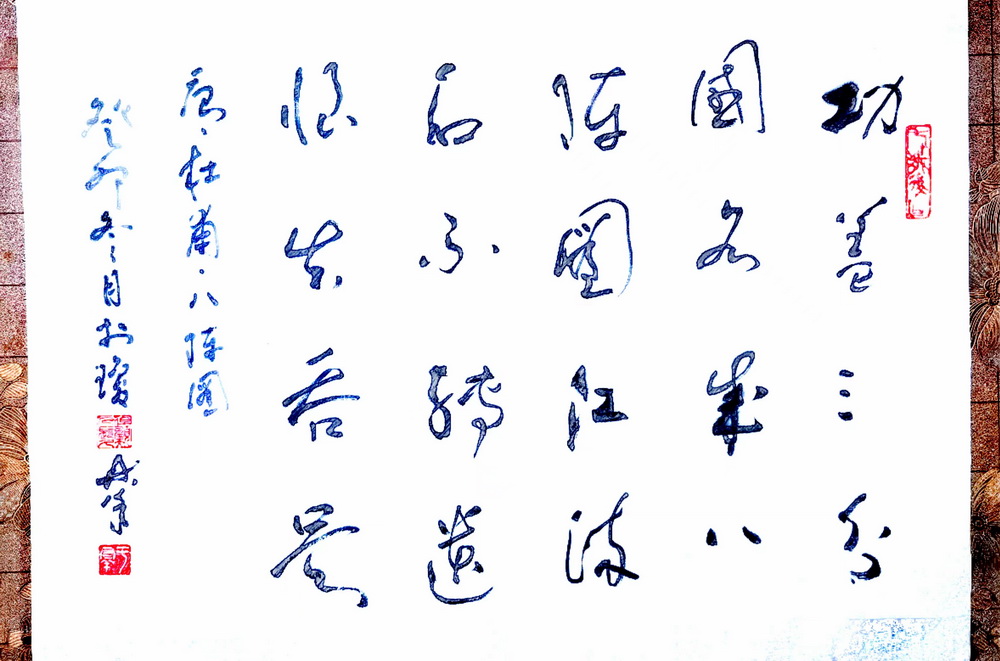 功盖三分
國名成八
陣圖江流
石不轉遺
恨失吞吳
唐·杜甫·八陣圖
癸卯冬月於瓊